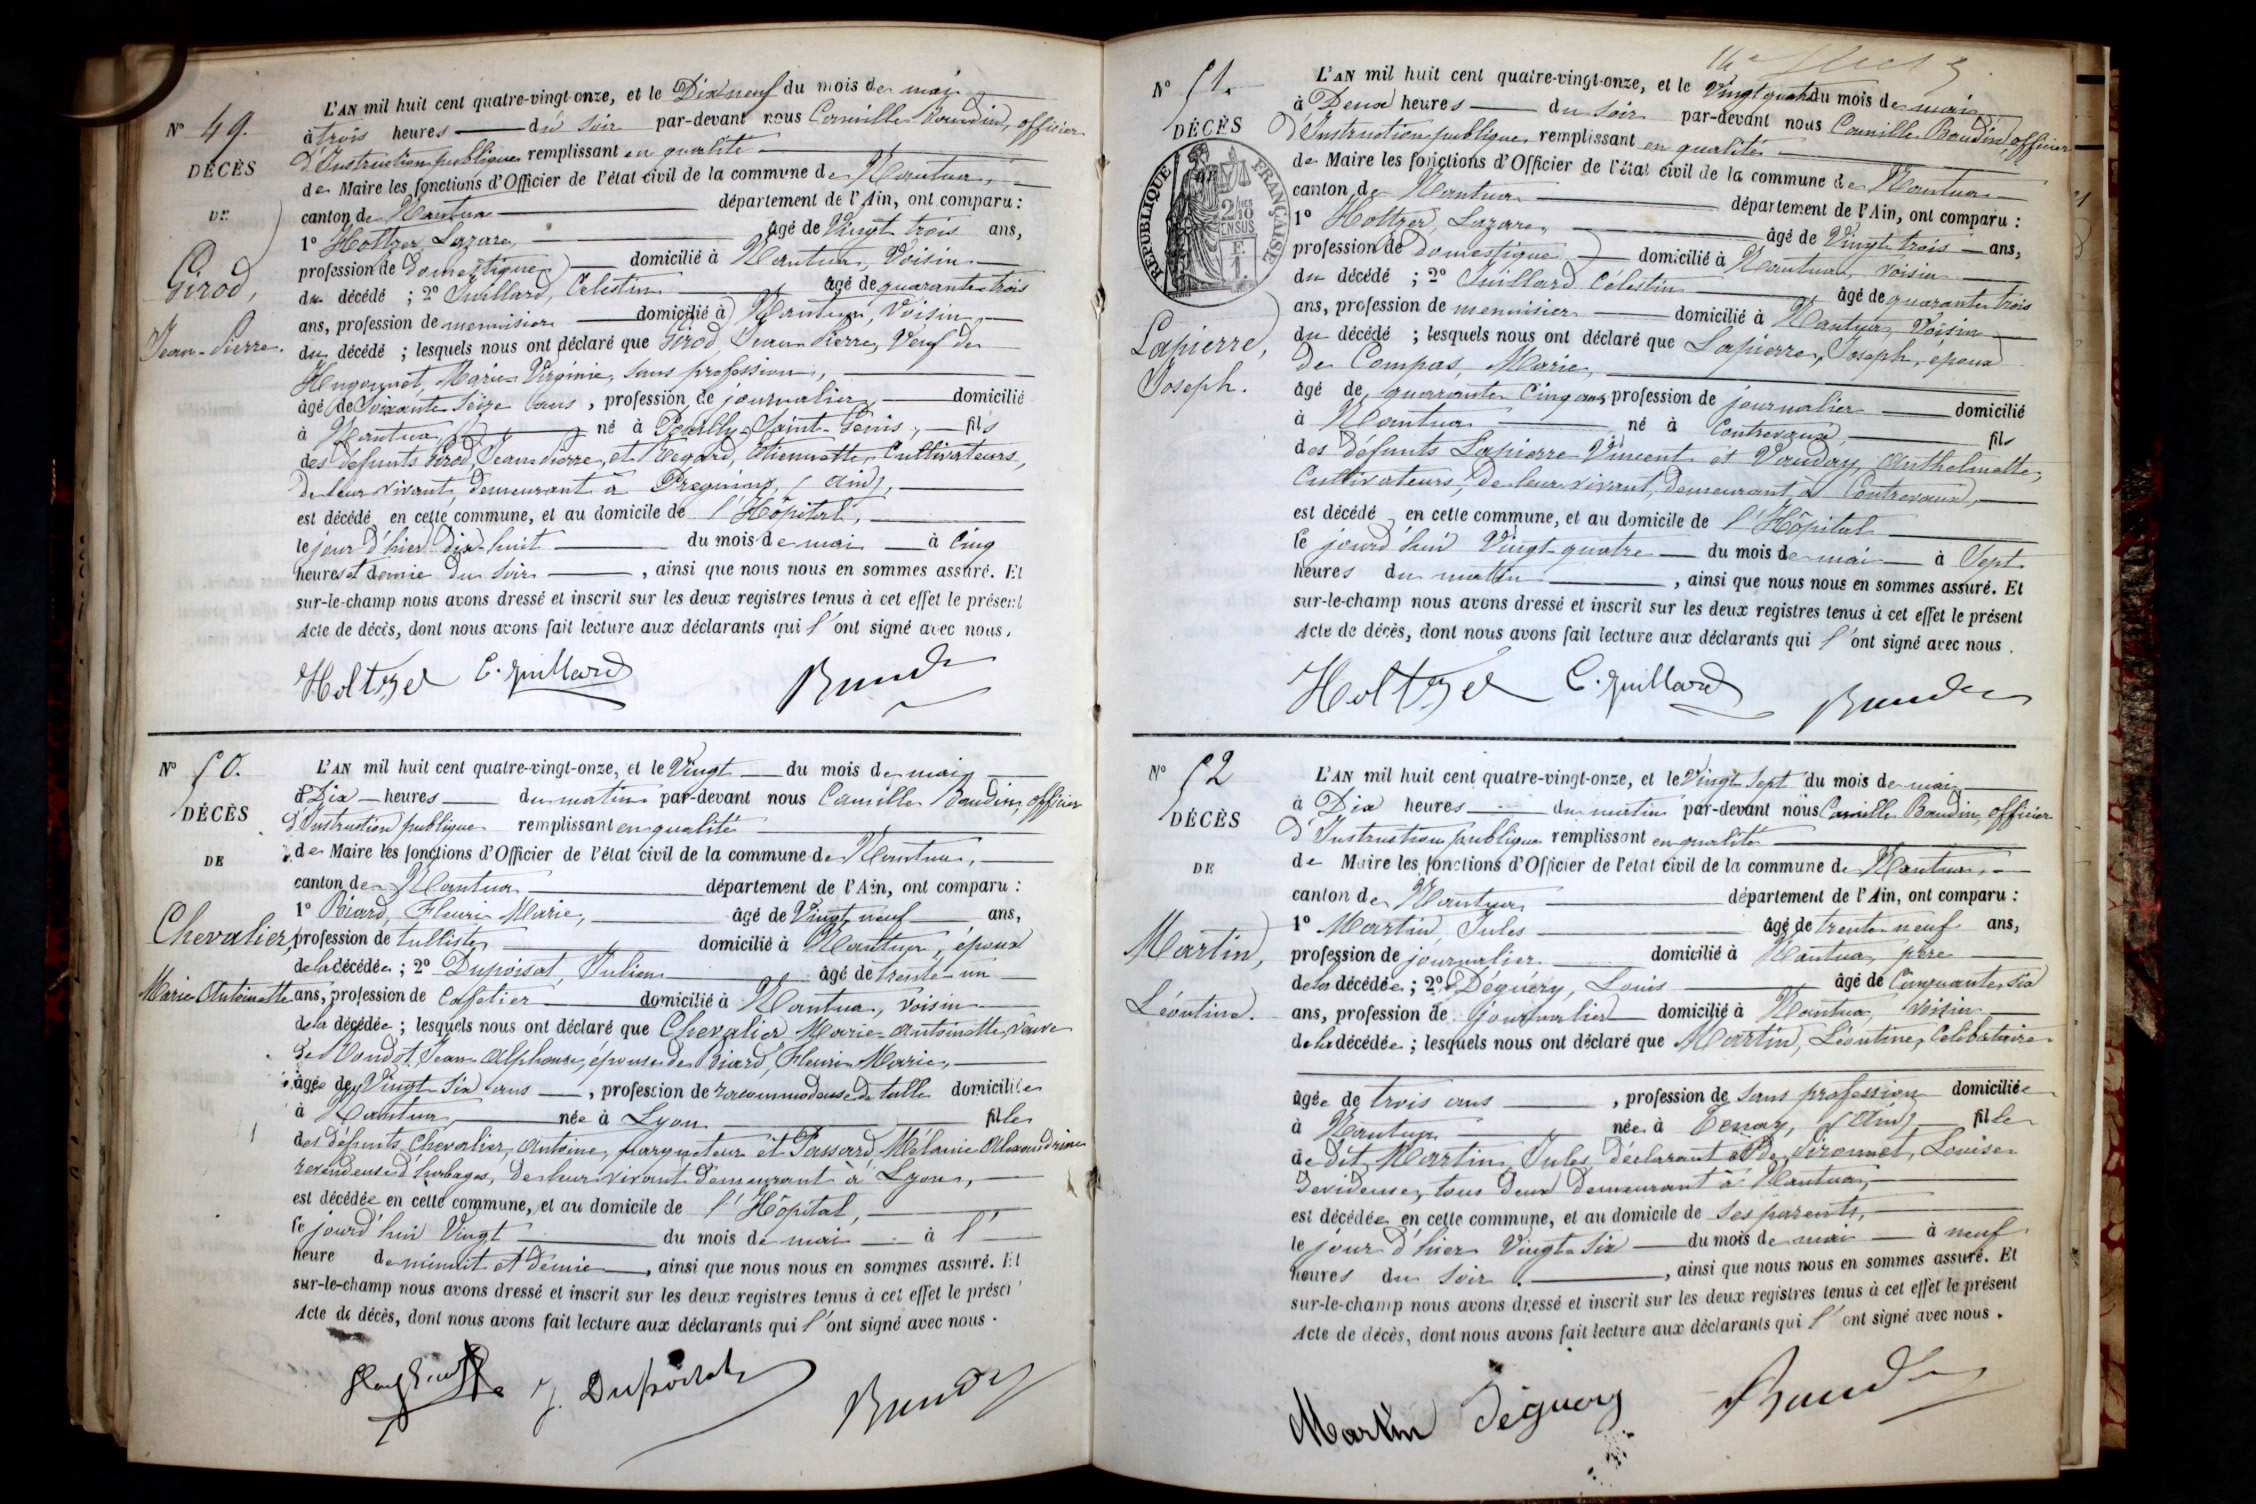 N° 49.
DÉCÈS
DE
Girod,
Jean-Pierre.
L'AN mil huit cent quatre-vingt-onze, et le Dix neuf du mois de mai
à trois heures du soir par-devant nous Camille Baudin, officier
d'Instruction publique remplissant en qualité
de Maire les fonctions d'Officier de l'état civil de la commune de Nantua,
canton de Nantua département de l'Ain, ont comparu :
1° Holtzer, Lazare, âgé de Vingt trois ans,
profession de domestique domicilié à Nantua, Voisin
du décédé ; 2° Juillard, Célestin âgé de quarante trois
ans, profession de menuisier domicilié à Nantua, Voisin,
du décédé ; lesquels nous ont déclaré que Girod, Jean Pierre, Veuf de
Hugonnet, Marie Virginie, sans profession,
âgé de Soixante Seize ans, profession de journalier domicilié
à Nantua, né à Pouilly-Saint-Genis, fils
des défunts Girod, Jean Pierre, et Regard, Etiennette, Cultivateurs,
de leur vivant, demeurant à Pregnin, (Ain),
est décédé en cette commune, et au domicile de l'Hôpital,
le jour d'hier dix-huit du mois de mai à Cinq
heures et demie du soir, ainsi que nous nous en sommes assuré. Et
sur-le-champ nous avons dressé et inscrit sur les deux registres tenus à cet effet le présent
Acte de décès, dont nous avons fait lecture aux déclarants qui l'ont signé avec nous.
Holtzer C. Juillard Baudin
N° 50.
DÉCÈS
DE
Chevalier,
Marie Antoinette
L'AN mil huit cent quatre-vingt-onze, et le Vingt du mois de mai
à Dix heures du matin par-devant nous Camille Baudin, officier
d'Instruction publique remplissant en qualité
de Maire les fonctions d'Officier de l'état civil de la commune de Nantua,
canton de Nantua département de l'Ain, ont comparu :
1° Biard, Fleuri Marie, âgé de Vingt neuf ans,
profession de tulliste domicilié à Nantua, époux
de la décédée ; 2° Dupoisat, Julien âgé de trente un
ans, profession de Cafetier domicilié à Nantua, voisin
de la décédée ; lesquels nous ont déclaré que Chevalier Marie-Antoinette, veuve
de Vondot, Jean Alphonse, épouse de Biard, Fleuri Marie,
âgée de Vingt Six ans, profession de raccommodeuse de tulle domiciliée
à Nantua, née à Lyon fille
des défunts Chevalier, Antoine, parqueteur et Passard Mélanie Alexandrine
revendeuse d'herbages, de leur vivant demeurant à Lyon,
est décédée en cette commune, et au domicile de l'Hôpital,
le jourd'hui Vingt du mois de mai à l'
heure de minuit et demie, ainsi que nous nous en sommes assuré. Et
sur-le-champ nous avons dressé et inscrit sur les deux registres tenus à cet effet le présent
Acte de décès, dont nous avons fait lecture aux déclarants qui l'ont signé avec nous.
J. Dupoisat Baudin
N° 51.
DÉCÈS
RÉPUBLIQUE FRANÇAISE
Lapierre,
Joseph.
L'AN mil huit cent quatre-vingt-onze, et le Vingt quatre du mois de mai
à Deux heures du soir par-devant nous Camille Baudin, officier
d'Instruction publique, remplissant en qualité
de Maire les fonctions d'Officier de l'état civil de la commune de Nantua
canton de Nantua département de l'Ain, ont comparu :
1° Holtzer, Lazare, âgé de Vingt trois ans,
profession de domestique domicilié à Nantua, voisin
du décédé ; 2° Juillard Célestin âgé de quarante trois
ans, profession de menuisier domicilié à Nantua, Voisin
du décédé ; lesquels nous ont déclaré que Lapierre, Joseph, époux
de Compas, Marie,
âgé de quarante Cinq ans, profession de journalier domicilié
à Nantua né à Contrevoux, fils
des défunts Lapierre Vincent et Vauday, Anthelmette,
Cultivateurs, de leur vivant, demeurant à Contrevoux,
est décédé en cette commune, et au domicile de l'Hôpital
le jourd'hui Vingt-quatre du mois de mai à Sept
heures du matin, ainsi que nous nous en sommes assuré. Et
sur-le-champ nous avons dressé et inscrit sur les deux registres tenus à cet effet le présent
Acte de décès, dont nous avons fait lecture aux déclarants qui l'ont signé avec nous.
Holtzer C. Juillard Baudin
N° 52
DÉCÈS
DE
Martin,
Léontine.
L'AN mil huit cent quatre-vingt-onze, et le Vingt Sept du mois de mai
à Dix heures du matin par-devant nous Camille Baudin, officier
d'Instruction publique remplissant en qualité
de Maire les fonctions d'Officier de l'état civil de la commune de Nantua,
canton de Nantua département de l'Ain, ont comparu :
1° Martin, Jules âgé de trente neuf ans,
profession de journalier domicilié à Nantua, père
de la décédée ; 2° Déguéry, Louis âgé de Cinquante six
ans, profession de journalier domicilié à Nantua, voisin
de la décédée ; lesquels nous ont déclaré que Martin, Léontine, Célibataire
âgée de trois ans, profession de sans profession domiciliée
à Nantua née à Tenay, (Ain) fille
de dit Martin, Jules, déclarant et de Gironnet, Louise
devideuse, tous deux demeurant à Nantua,
est décédée en cette commune, et au domicile de ses parents,
le jour d'hier Vingt-Six du mois de mai à neuf
heures du soir, ainsi que nous nous en sommes assuré. Et
sur-le-champ nous avons dressé et inscrit sur les deux registres tenus à cet effet le présent
Acte de décès, dont nous avons fait lecture aux déclarants qui l'ont signé avec nous.
Martin Déguery Baudin